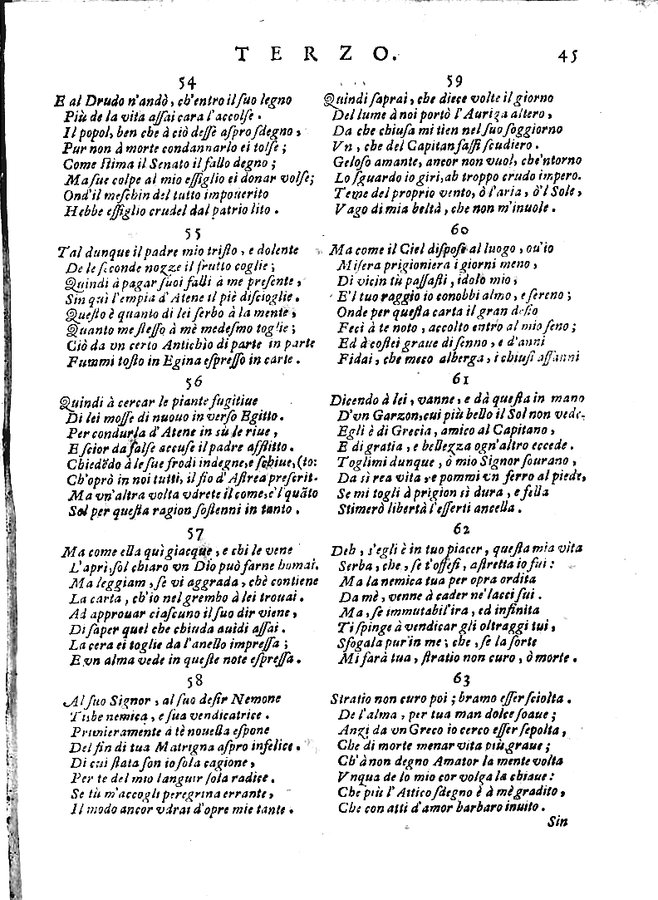 TERZO. 45
54
E al Drudo n'andò, ch'entro il ſuo legno
Più de la vita aſſai cara l'accolſe.
Il popol, ben che à ciò deſſe aſpro ſdegno,
Pur non à morte condannarlo ei tolſe;
Come ſtima il Senato il fallo degno;
Ma ſue colpe al mio eſſiglio ei donar volſe;
Ond'il meſchin del tutto impouerito
Hebbe eſſiglio crudel dal patrio lito.
55
Tal dunque il padre mio triſto, e dolente
De le ſeconde nozze il frutto coglie;
Quindi à pagar ſuoi falli à me preſente,
Sin quì l'empia d'Atene il piè diſcioglie.
Queſto è quanto di lei ſerbo à la mente,
Quanto me ſteſſo à mè medeſmo toglie;
Ciò da vn certo Antichio di parte in parte
Fummi toſto in Egina eſpreſſo in carte.
56
Quindi à cercar le piante fugitiue
Di lei moſſe di nuouo in verſo Egitto.
Per condurla d'Atene in sù le riue,
E ſcior da falſe accuſe il padre afflitto.
Chiedēdo à le ſue frodi indegne, e ſchiue, (to:
Ch'oprò in noi tutti, il fio d'Aſtrea preſcrit-
Ma vn'altra volta vdrete il come, e'l quāto
Sol per queſta ragion ſoſtenni in tanto.
57
Ma come ella quì giacque, e chi le vene
L'aprì, ſol chiaro vn Dio può farne homai.
Ma leggiam, ſe vi aggrada, chè contiene
La carta, ch'io nel grembo à lei trouai.
Ad approuar ciaſcuno il ſuo dir viene,
Di ſaper quel che chiuda auidi aſſai.
La cera ei toglie da l'anello impreſſa;
E vn alma vede in queſte note eſpreſſa.
58
Al ſuo Signor, al ſuo deſir Nemone
Tisbe nemica, e ſua vendicatrice.
Primieramente à tè nouella eſpone
Del fin di tua Matrigna aſpro infelice.
Di cui ſtata ſon io ſola cagione,
Per te del mio languir ſola radice.
Se tù m'accogli peregrina errante,
Il modo ancor vdrai d'opre mie tante.
59
Quindi ſaprai, che diece volte il giorno
Del lume à noi portò l'Auriga altero,
Da che chiuſa mi tien nel ſuo ſoggiorno
Vn, che del Capitan faſſi ſcudiero.
Geloſo amante, ancor non vuol, che'ntorno
Lo ſguardo io giri, ab troppo crudo impero.
Teme del proprio vento, ò l'aria, ò'l Sole,
Vago di mia beltà, che non m'inuole.
60
Ma come il Ciel diſpoſe al luogo, ou'io
Miſera prigioniera i giorni meno,
Di vicin tù paſſaſti, idolo mio,
E'l tuo raggio io conobbi almo, e ſereno;
Onde per queſta carta il gran deſio
Feci à te noto, accolto entro al mio ſeno;
Ed à coſtei graue di ſenno, e d'anni
Fidai, che meco alberga, i chiuſi affanni
61
Dicendo à lei, vanne, e dà queſta in mano
D'vn Garzon, cui più bello il Sol non vede.
Egli è di Grecia, amico al Capitano,
E di gratia, e bellezza ogn'altro eccede.
Toglimi dunque, ò mio Signor ſourano,
Da sì rea vita, e pommi vn ferro al piede,
Se mi togli à prigion sì dura, e fella
Stimerò libertà l'eſſerti ancella.
62
Deh, s'egli è in tuo piacer, queſta mia vita
Serba, che, ſe t'offeſi, aſtretta io fui:
Ma la nemica tua per opra ordita
Da mè, venne à cader ne'lacci ſui.
Ma, ſe immutabil'ira, ed infinita
Ti ſpinge à vendicar gli oltraggi tui,
Sfogala pur in me; che, ſe la ſorte
Mi farà tua, ſtratio non curo, ò morte.
63
Stratio non curo poi; bramo eſſer ſciolta.
De l'alma, per tua man dolce ſoaue;
Anzi da vn Greco io cerco eſſer ſepolta,
Che di morte menar vita più graue;
Ch'à non degno Amator la mente volta
Vnqua de lo mio cor volga la chiaue:
Che più l'Attico ſdegno è à mè gradito,
Che con atti d'amor barbaro inuito.
Sin